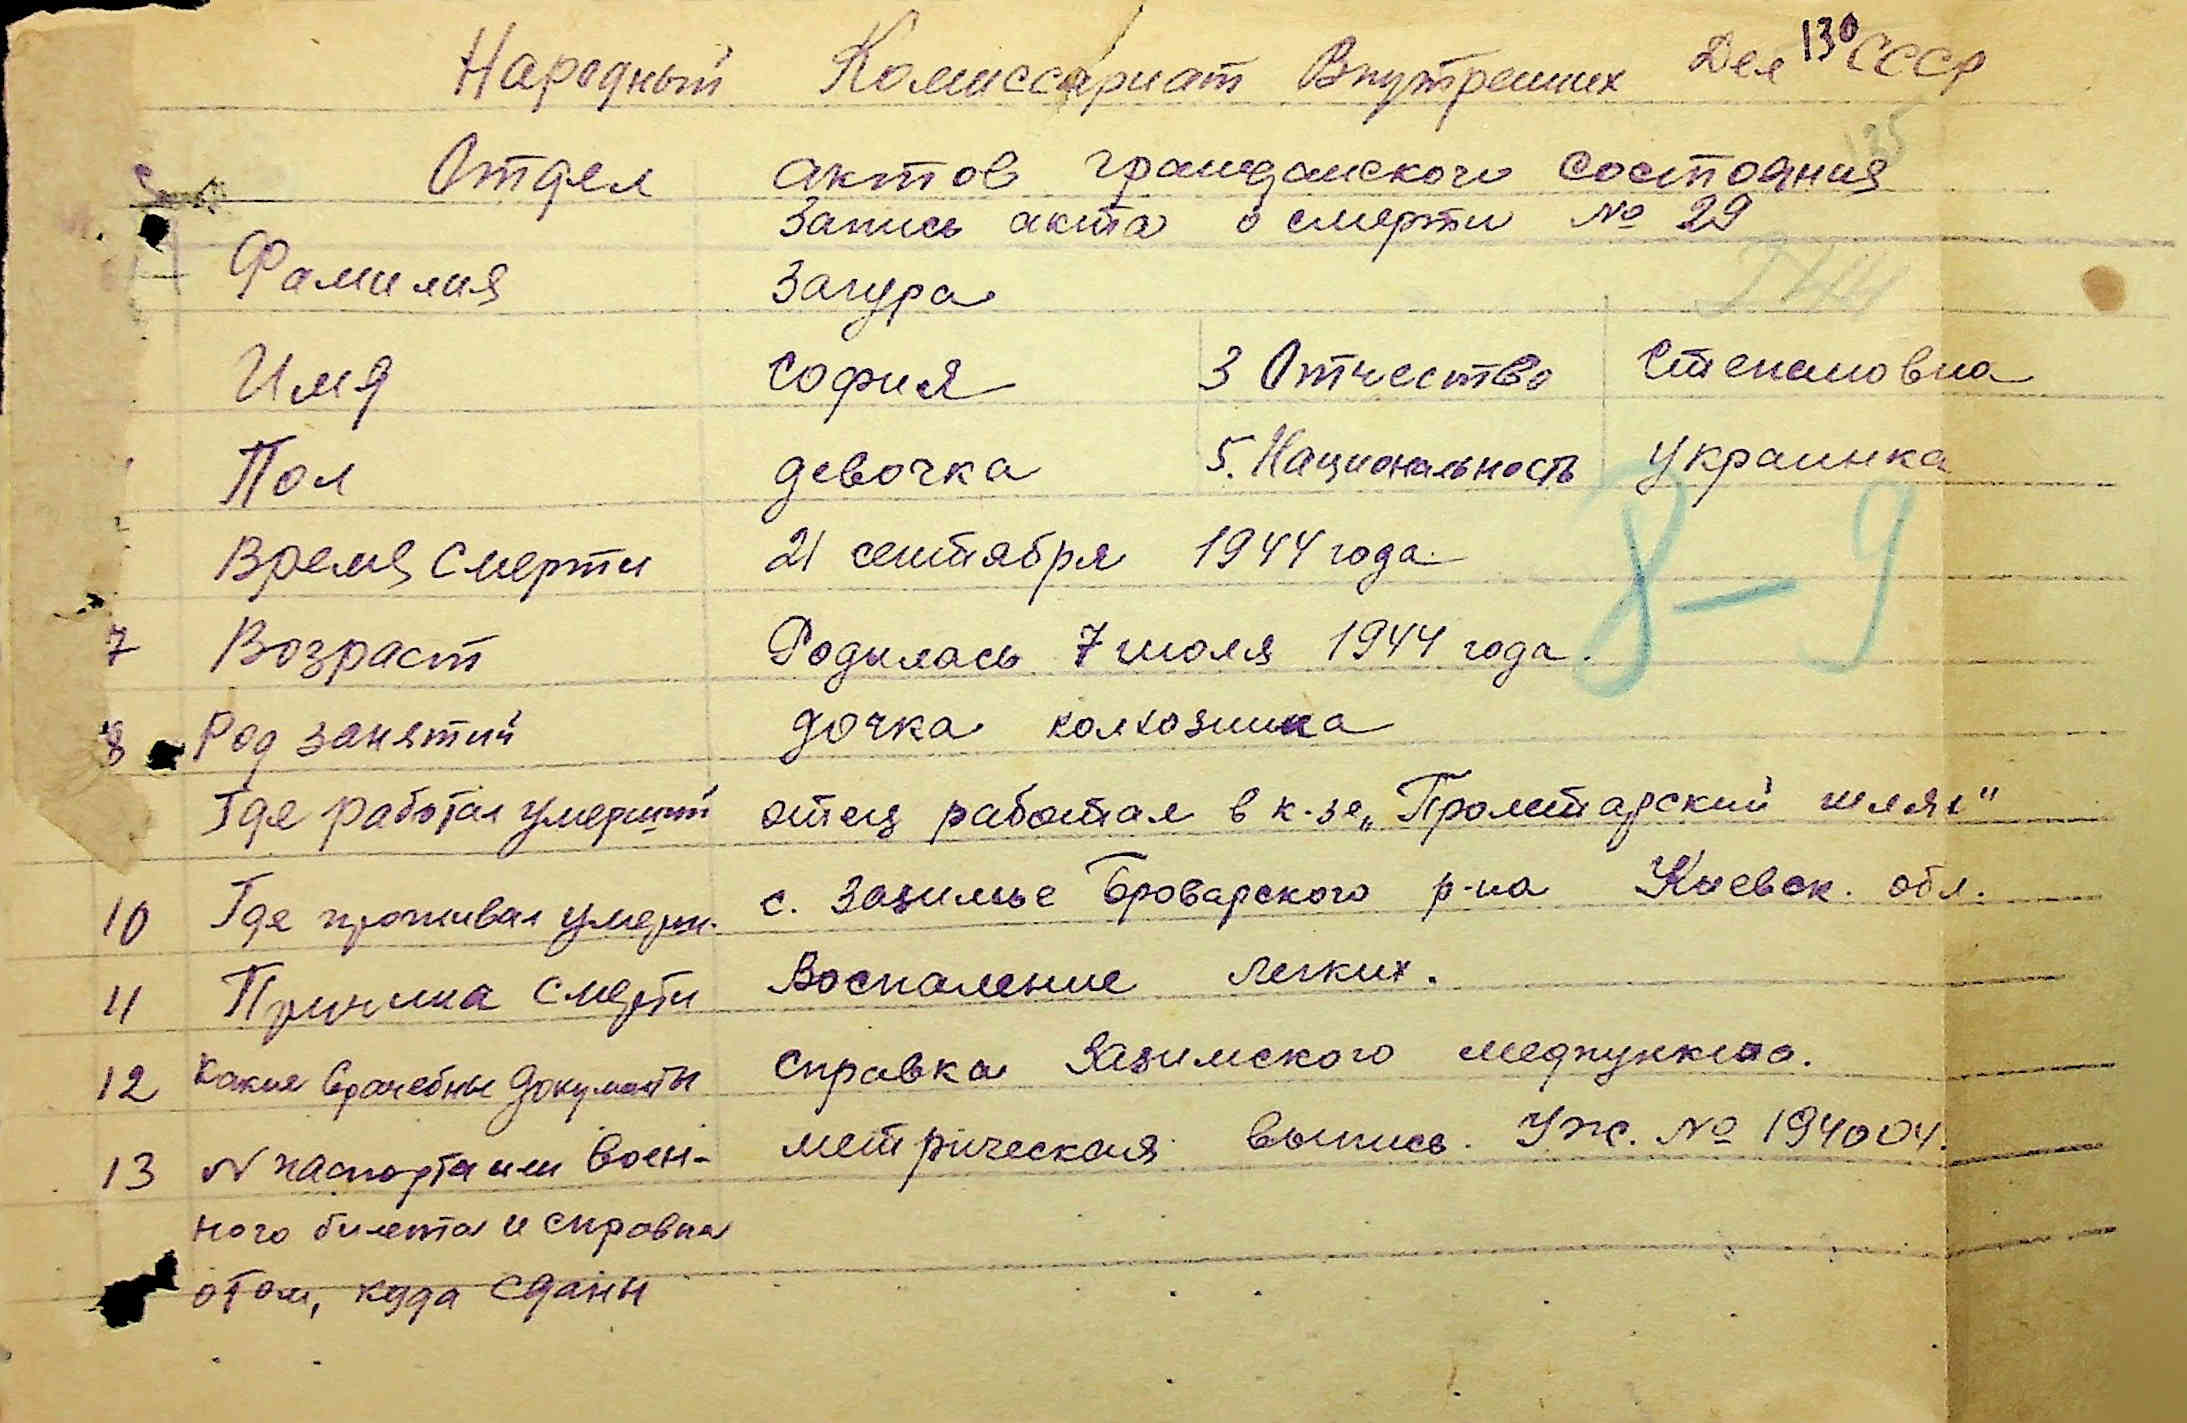 130
Народный Комиссариат Внутренних Дел СССР
135
Отдел актов гражданского состояния
Запись акта о смерти № 29
Фамилия Загура
244
Имя София 3 Отчество Степановна
Пол девочка 5. Национальность Украинка
8-9
Время смерти 21 сентября 1944 года.
7 Возраст Родылась 7 июля 1944 года.
8 Род занятий дочка колхозника
Где работал умерший отец работал в к-зе „Пролетарский шлях"
10 Где проживал умерш. с. Зазимье Броварского р-на Киевск. обл.
11 Причина смерти Воспаление легких.
12 Какие врачебны документы справка Зазимского медпункта.
13 N паспорта или воен- метрическая выпись. УЖ. № 194004.
ного билета и справка
о том, куда сданы